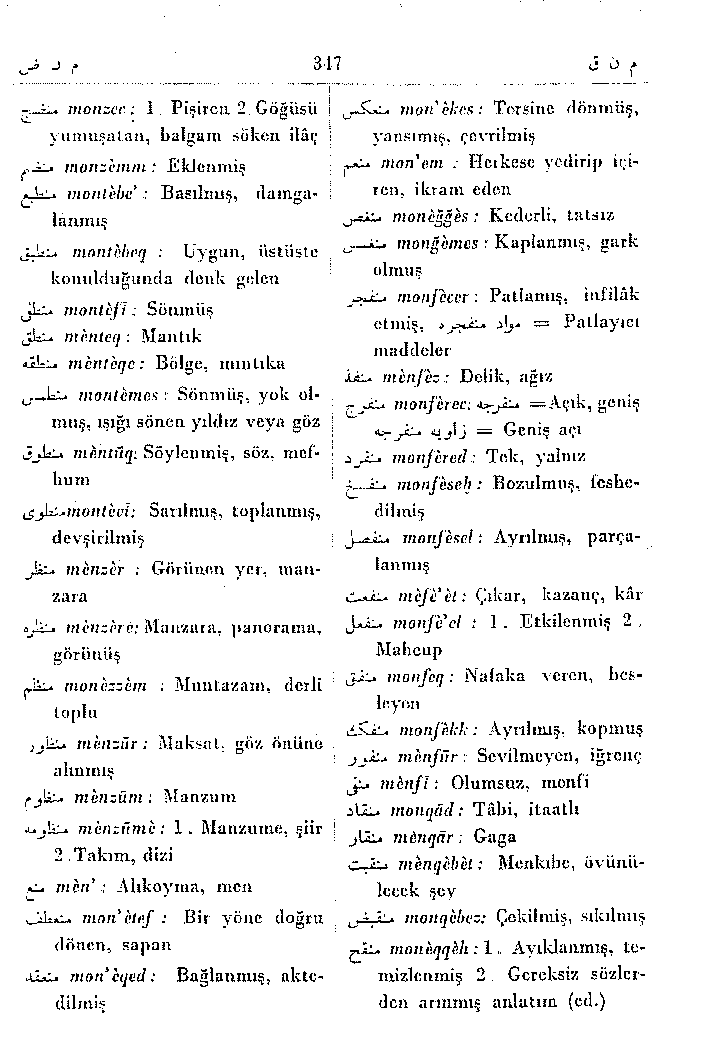 م ن ض 347 م ن ق
منضج monzec : 1. Pişiren 2. Göğüsü
yumuşatan, balgam söken ilâç
منضم monzèmm : Eklenmiş
منطبع montèbe' : Basılmış, damga-
lanmış
منطبق montèbeq : Uygun, üstüste
konulduğunda denk gelen
منطفی montèfî : Sönmüş
منطق mènteq : Mantık
منطقه mènteqe : Bölge, mıntıka
منطمس montèmes : Sönmüş, yok ol-
muş, ışığı sönen yıldız veya göz
منطوق mèntûq: Söylenmiş, söz, mef-
hum
منطوی montèvî: Sarılmış, toplanmış,
devşirilmiş
منظر mènzèr : Görünen yer, man-
zara
منظره mènzère: Manzara, panorama,
görünüş
منظم monèzzèm : Muntazam, derli
toplu
منظور mènzûr : Maksat, göz önüne
alınmış
منظوم mènzûm : Manzum
منظومه mènzûmè : 1. Manzume, şiir
2. Takım, dizi
منع mèn' : Alıkoyma, men
منعطف mon'ètef : Bir yöne doğru
dönen, sapan
منعقد mon'èqed : Bağlanmış, akte-
dilmiş
منعکس mon'èkes : Tersine dönmüş,
yansımış, çevrilmiş
منعم mon'em : Herkese yedirip içi-
ren, ikram eden
منغص monèğğès : Kederli, tatsız
منغمس monğèmes : Kaplanmış, gark
olmuş
منفجر monfècer : Patlamış, infilâk
etmiş, مواد منفجره = Patlayıcı
maddeler
منفذ mènfèz : Delik, ağız
منفرج monfèrec; منفرجه = Açık, geniş
زاویه منفرجه = Geniş açı
منفرد monfèred : Tek, yalnız
منفسخ monfèseh : Bozulmuş, feshe-
dilmiş
منفصل monfèsel : Ayrılmış, parça-
lanmış
منفعت mèfè'èt : Çıkar, kazanç, kâr
منفعل monfè'el : 1. Etkilenmiş 2.
Mahcup
منفق monfeq : Nafaka veren, bes-
leyen
منفک monfèkk : Ayrılmış, kopmuş
منفور mènfûr : Sevilmeyen, iğrenç
منفی mènfî : Olumsuz, menfi
منقاد monqâd : Tâbi, itaatlı
منقار mènqâr : Gaga
منقبت mènqèbèt : Menkıbe, övünü-
lecek şey
منقبض monqèbez: Çekilmiş, sıkılmış
منقح monèqqèh : 1. Ayıklanmış, te-
mizlenmiş 2. Gereksiz sözler-
den arınmış anlatım (ed.)